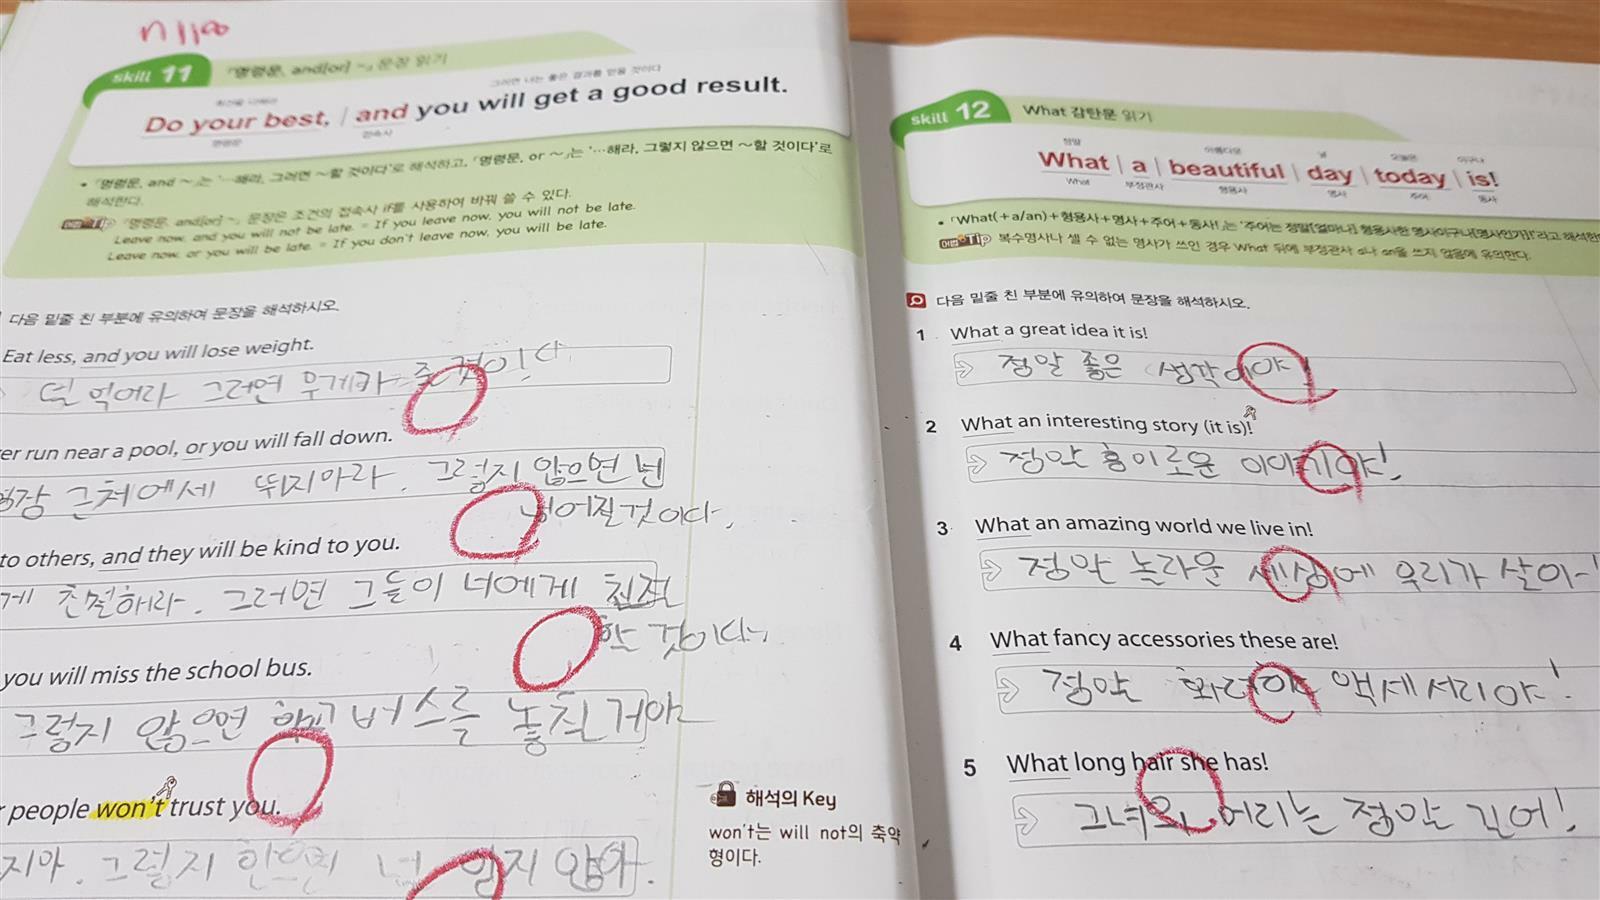 skill 11
「명령문, and[or] ~」 문장 읽기
최선을 다해라
그러면 너는 좋은 결과를 얻을 것이다
Do your best, | and you will get a good result.
명령문
접속사
• 「명령문, and ~」는 '…해라, 그러면 ~할 것이다'로 해석하고, 「명령문, or ~」는 '…해라, 그렇지 않으면 ~할 것이다'로
해석한다.
어법 Tip 「명령문, and[or] ~」 문장은 조건의 접속사 if를 사용하여 바꿔 쓸 수 있다.
Leave now, and you will not be late. = If you leave now, you will not be late.
Leave now, or you will be late. = If you don't leave now, you will be late.
다음 밑줄 친 부분에 유의하여 문장을 해석하시오.
Eat less, and you will lose weight.
덜 먹어라 그러면 무게가 줄 것이다.
er run near a pool, or you will fall down.
근처에세 뛰지마라. 그렇지 않으면 넌
넘어질것이다.
to others, and they will be kind to you.
게 친절해라. 그러면 그들이 너에게 친절
할 것이다.
you will miss the school bus.
그렇지 않으면 학교 버스를 놓칠거야
people won't trust you.
지마. 그렇지 않으면 넌 믿지 않아.
해석의 Key
won't는 will not의 축약
형이다.
skill 12
What 감탄문 읽기
정말 아름다운 날 오늘은 이구나
What | a | beautiful | day | today | is!
What 부정관사 형용사 명사 주어 동사
• 「What(+a/an)+형용사+명사+주어+동사!」는 '주어는 정말[얼마나] 형용사한 명사이구나[명사인가]!'라고 해석한
어법 Tip 복수명사나 셀 수 없는 명사가 쓰인 경우 What 뒤에 부정관사 a나 an을 쓰지 않음에 유의한다.
다음 밑줄 친 부분에 유의하여 문장을 해석하시오.
1 What a great idea it is!
정말 좋은 생각이야!
2 What an interesting story (it is)!
정말 흥미로운 이야기야!
3 What an amazing world we live in!
정말 놀라운 세상에 우리가 살아!
4 What fancy accessories these are!
정말 화려한 액세서리야!
5 What long hair she has!
그녀의 머리는 정말 길어!